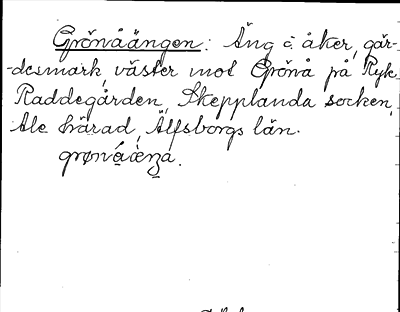 Grönåängen: Äng o. åker, gär-
-desmark, väster mot Grönå på Ryk,
Raddegården, Skepplanda socken,
Ale härad, Älfsborgs län.